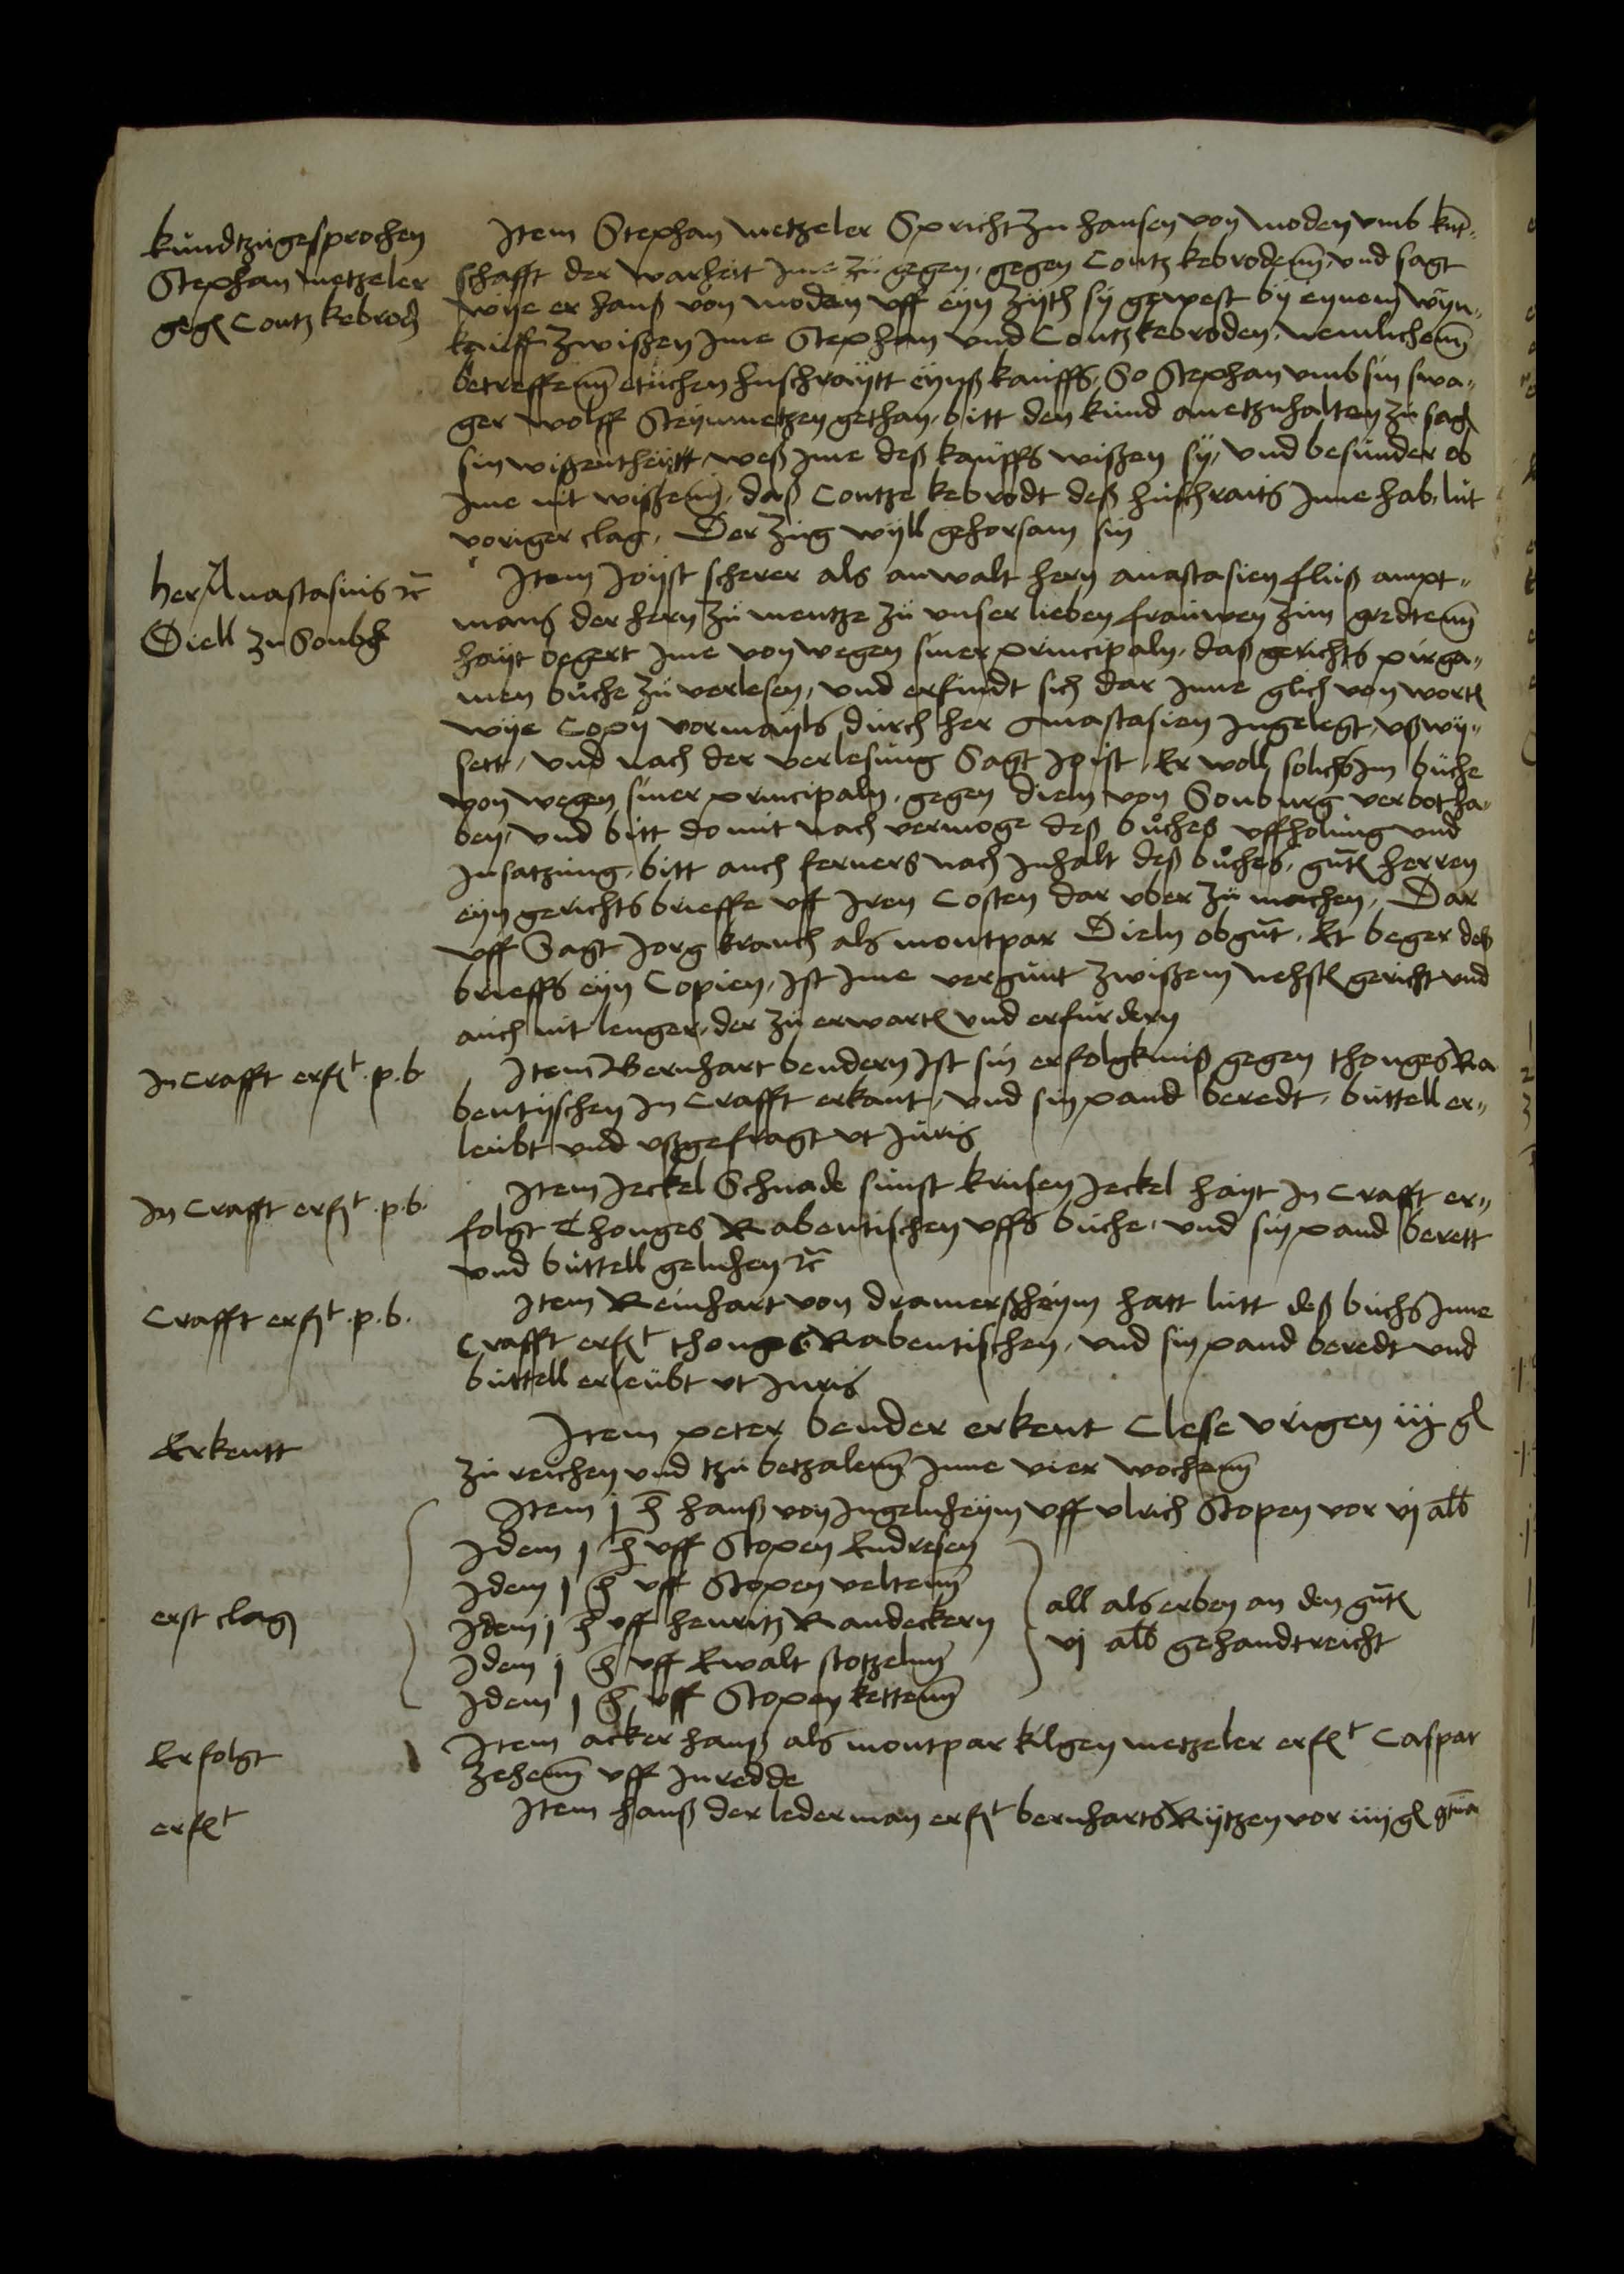 kundtzugesprochen
Stephan metzeler
geg Contz kebrod
Item Stephan metzeler Spricht zu hansen von moden vmb kn-
schafft der warheit jme zu gegen, gegen Contz kebroden, vnd sagt
wye er hanß von moden vff eyn zyth sy gewest by eynem wyn-
kauff zwißen jme Stephan vnd Contz kebroden, nemlichenn
betreffenn etlichen huschraytt eynß kauffs, So Stephan vmb sin swa-
ger wolff Steynmetzen gethan, bitt den kund anetzuhalten zu sag
sin wißentheytt, weß jme deß kauffs wißen sy, vnd besunder ob
jme nit wißenn, daß Contze kebrodt deß hußraits jnne hab, lut
voriger clag, Der zug wyll gehorsam sin
her Anastasius
Diell zu Sonbg
Item joyst scherer als anwalt hern anastasien fluß ampt-
mans der hern zu mentze zu vnser lieben frauwen zun gredtenn
hayt begert jme von wegen siner principaln, das gerichts pirga-
men buche zu verlesen, vnd erfindt sich dar jnne glich von wort
wye Copy vormayls durch her Anastasien jngelegt, vßwy-
sett, vnd nach der verlesung Sagt joist, Er woll solichs jm buche
von wegen siner principaln, gegen dieln von Sonburg verbot ha-
ben, vnd bitt domit nach vermoge deß buches vffholung vnd
jnsatzung, bitt auch ferners nach jnhalt deß buches, gut herren
eyn gerichts brieffe vff jren Costen dar vber zu machen, Dar
vff Sagt jorg krauch als montpar Dieln obgut, Er beger deß
brieffs eyn Copien, jst jme vergunt zwißem nehst gericht vnd
auch nit lenger, der zu erwart vnd erfurdern
jn Crafft erft p. b
Item Bernhart bendern jst sin erfolgkniß gegen thonges Ra
bentyschen jn Crafft erkant, vnd sin pand beredt, buttell er-
leubt vnd vßgefragt vt juris
jn Crafft erft p. b
Item jeckel Schnade sunst krusen jeckel hayt jn Crafft er-
folgt Thonges Rabentischen vffs buche, vnd sin pand berett
vnd buttell geluhen
Crafft erft p. b.
Item Reinhart von dramerßheym hatt lutt deß buchs jnne
Crafft erft thonges Rabentischen, vnd sin pand beredt vnd
buttell erleubt vt juris
Erkentt
Item peter bender erkent Clese vrigen iij gl
zu reichen vnd tzu betzalenn jnne vier wochenn
erst clag
Item j h hanß von jngelnheym vff vlrich Stopen vor vj alb
Idem j h vff Stopen Endresen
Idem j h vff Stopen veltenn
Idem j h vff henritz Randeckern
Idem j h vff Ewalt stotzelnn
Idem j h vff Stopen kettenn
all als erben an den gut
vj alb gehandtreicht
Erfolgt
Item acker hanß als montpar kilgen metzeler erft Caspar
zehenn vff jnredde
erft
Item hanß der lederman erft bernharts Rytzen vor iiij gl